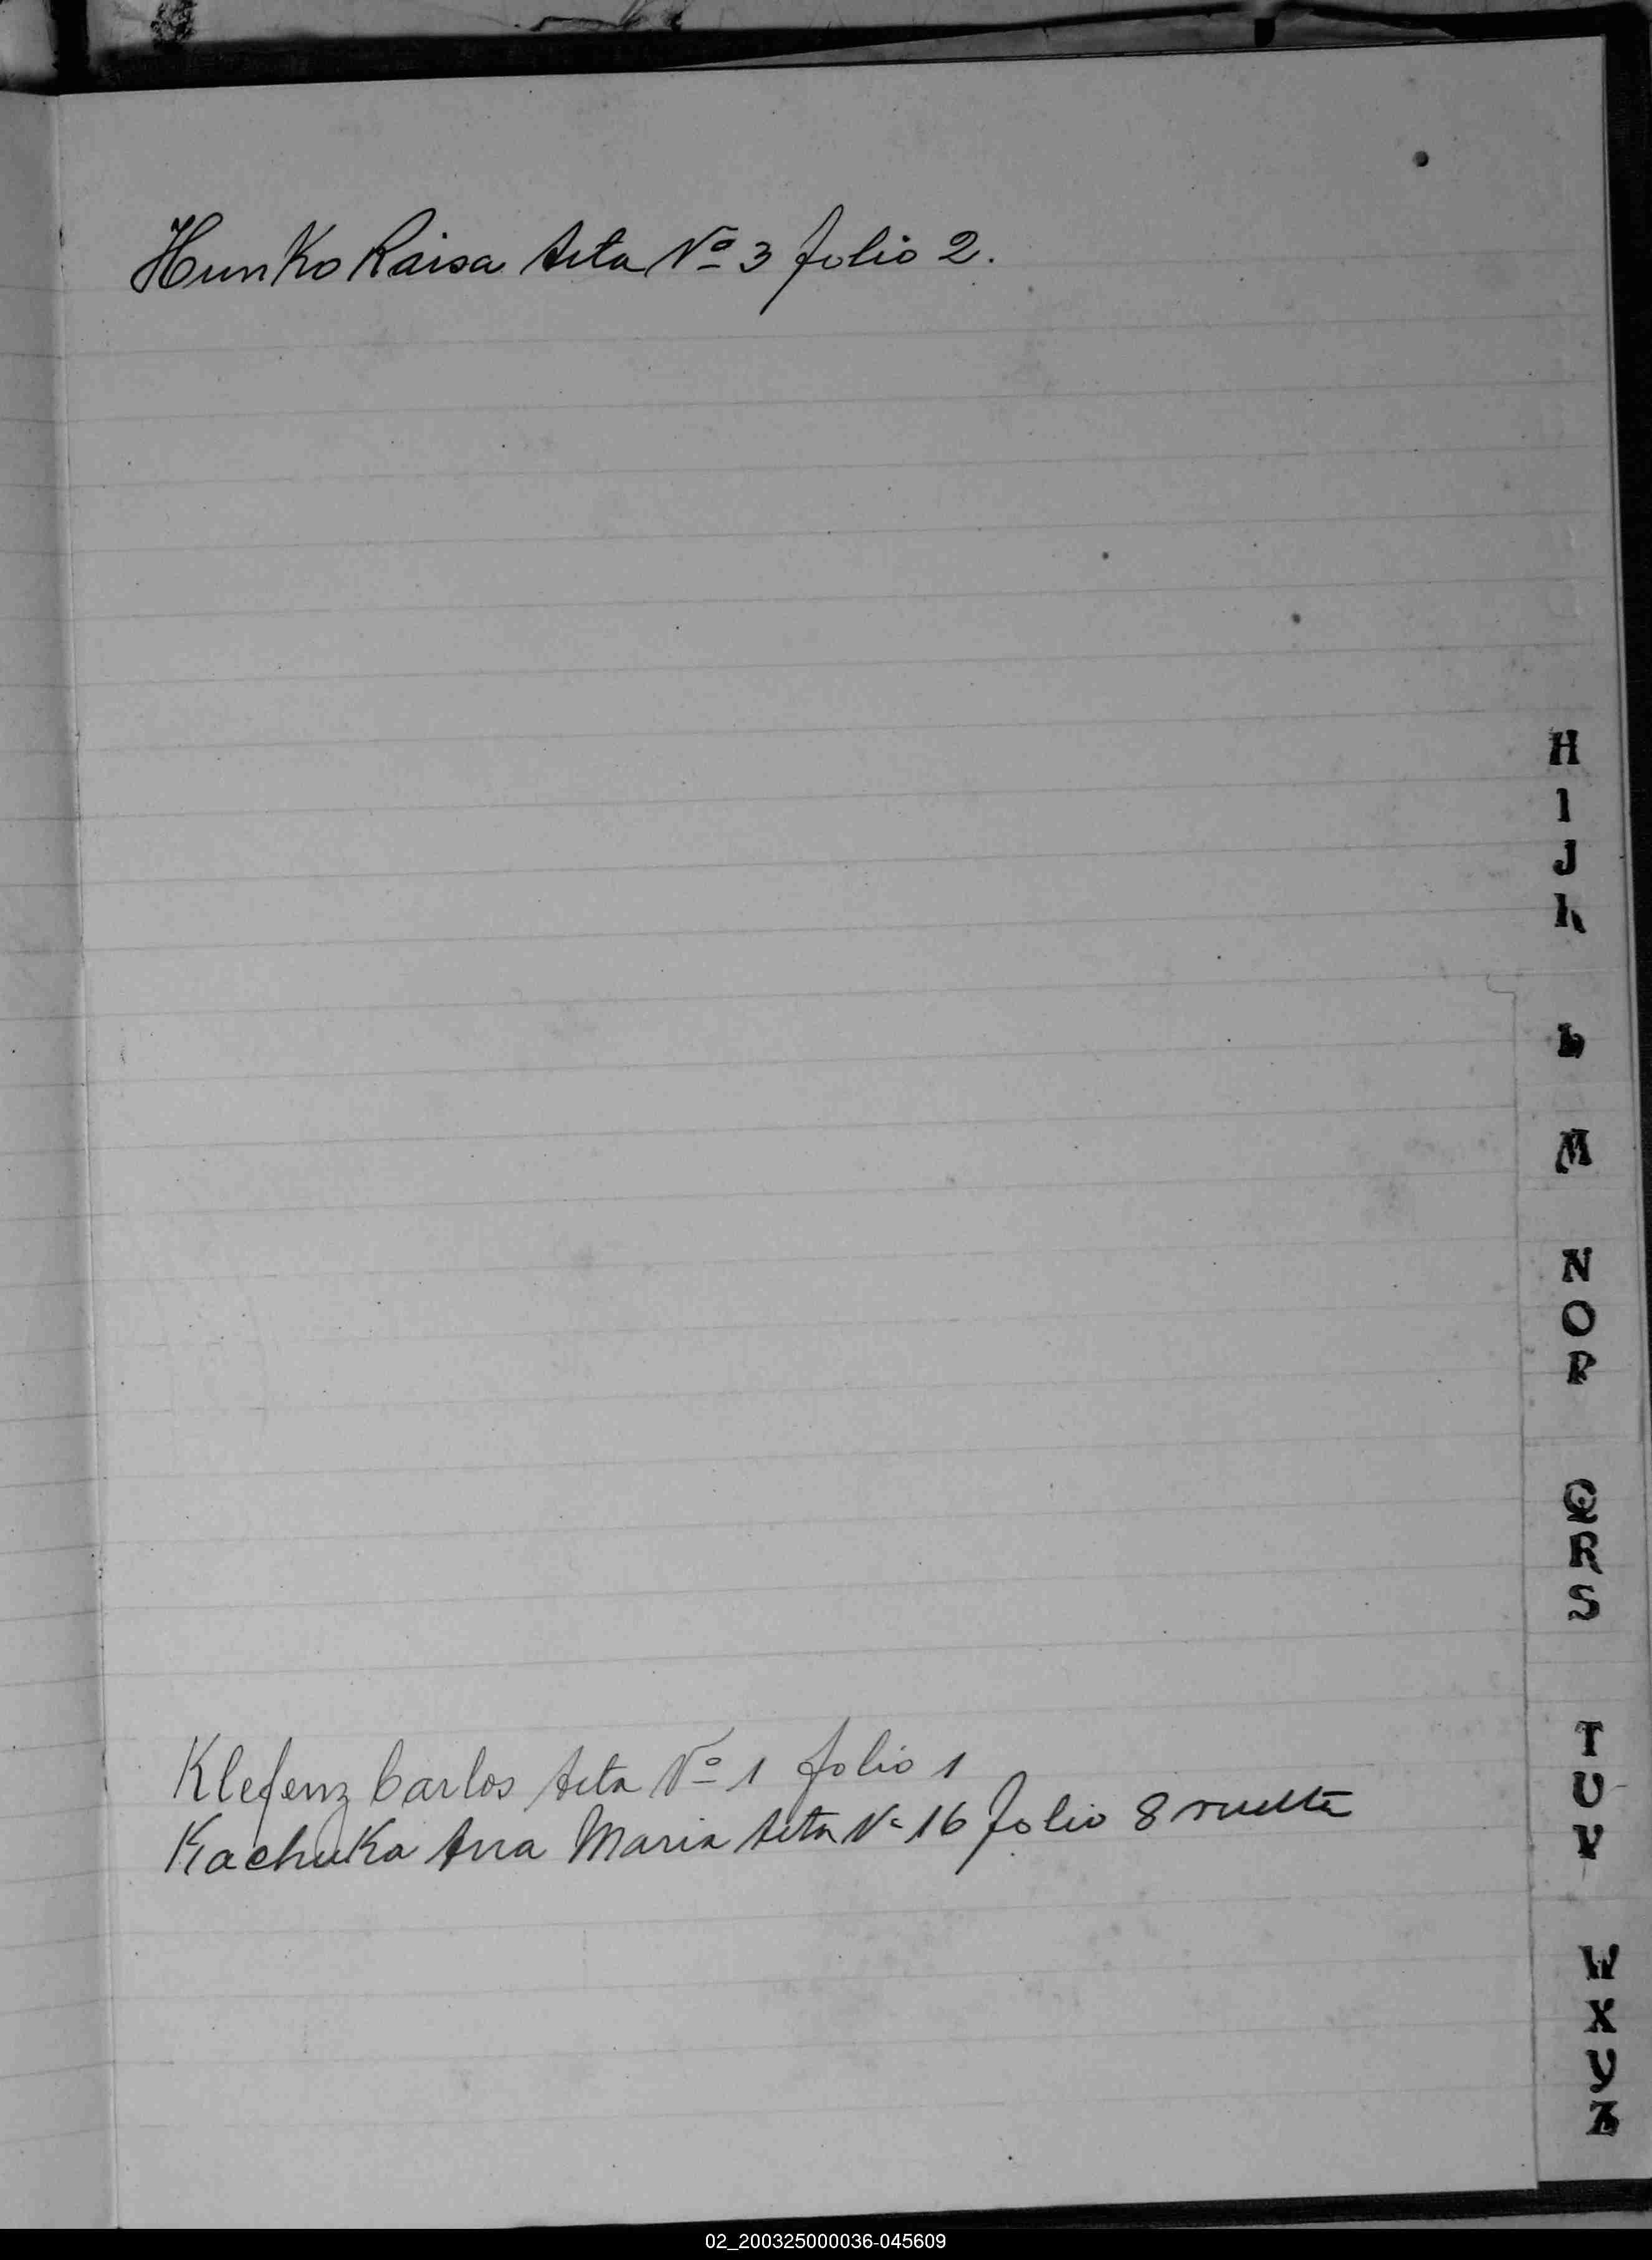 Hunko Raisa Acta Nº 3 folio 2.
H
I
J
K
L
M
N
O
P
Q
R
S
Klefenz Carlos Acta Nº 1 folio 1
Kachuka Ana Maria Acta Nº 16 folio 8 vuelta
T
U
V
W
X
Y
Z
02_200325000036-045609